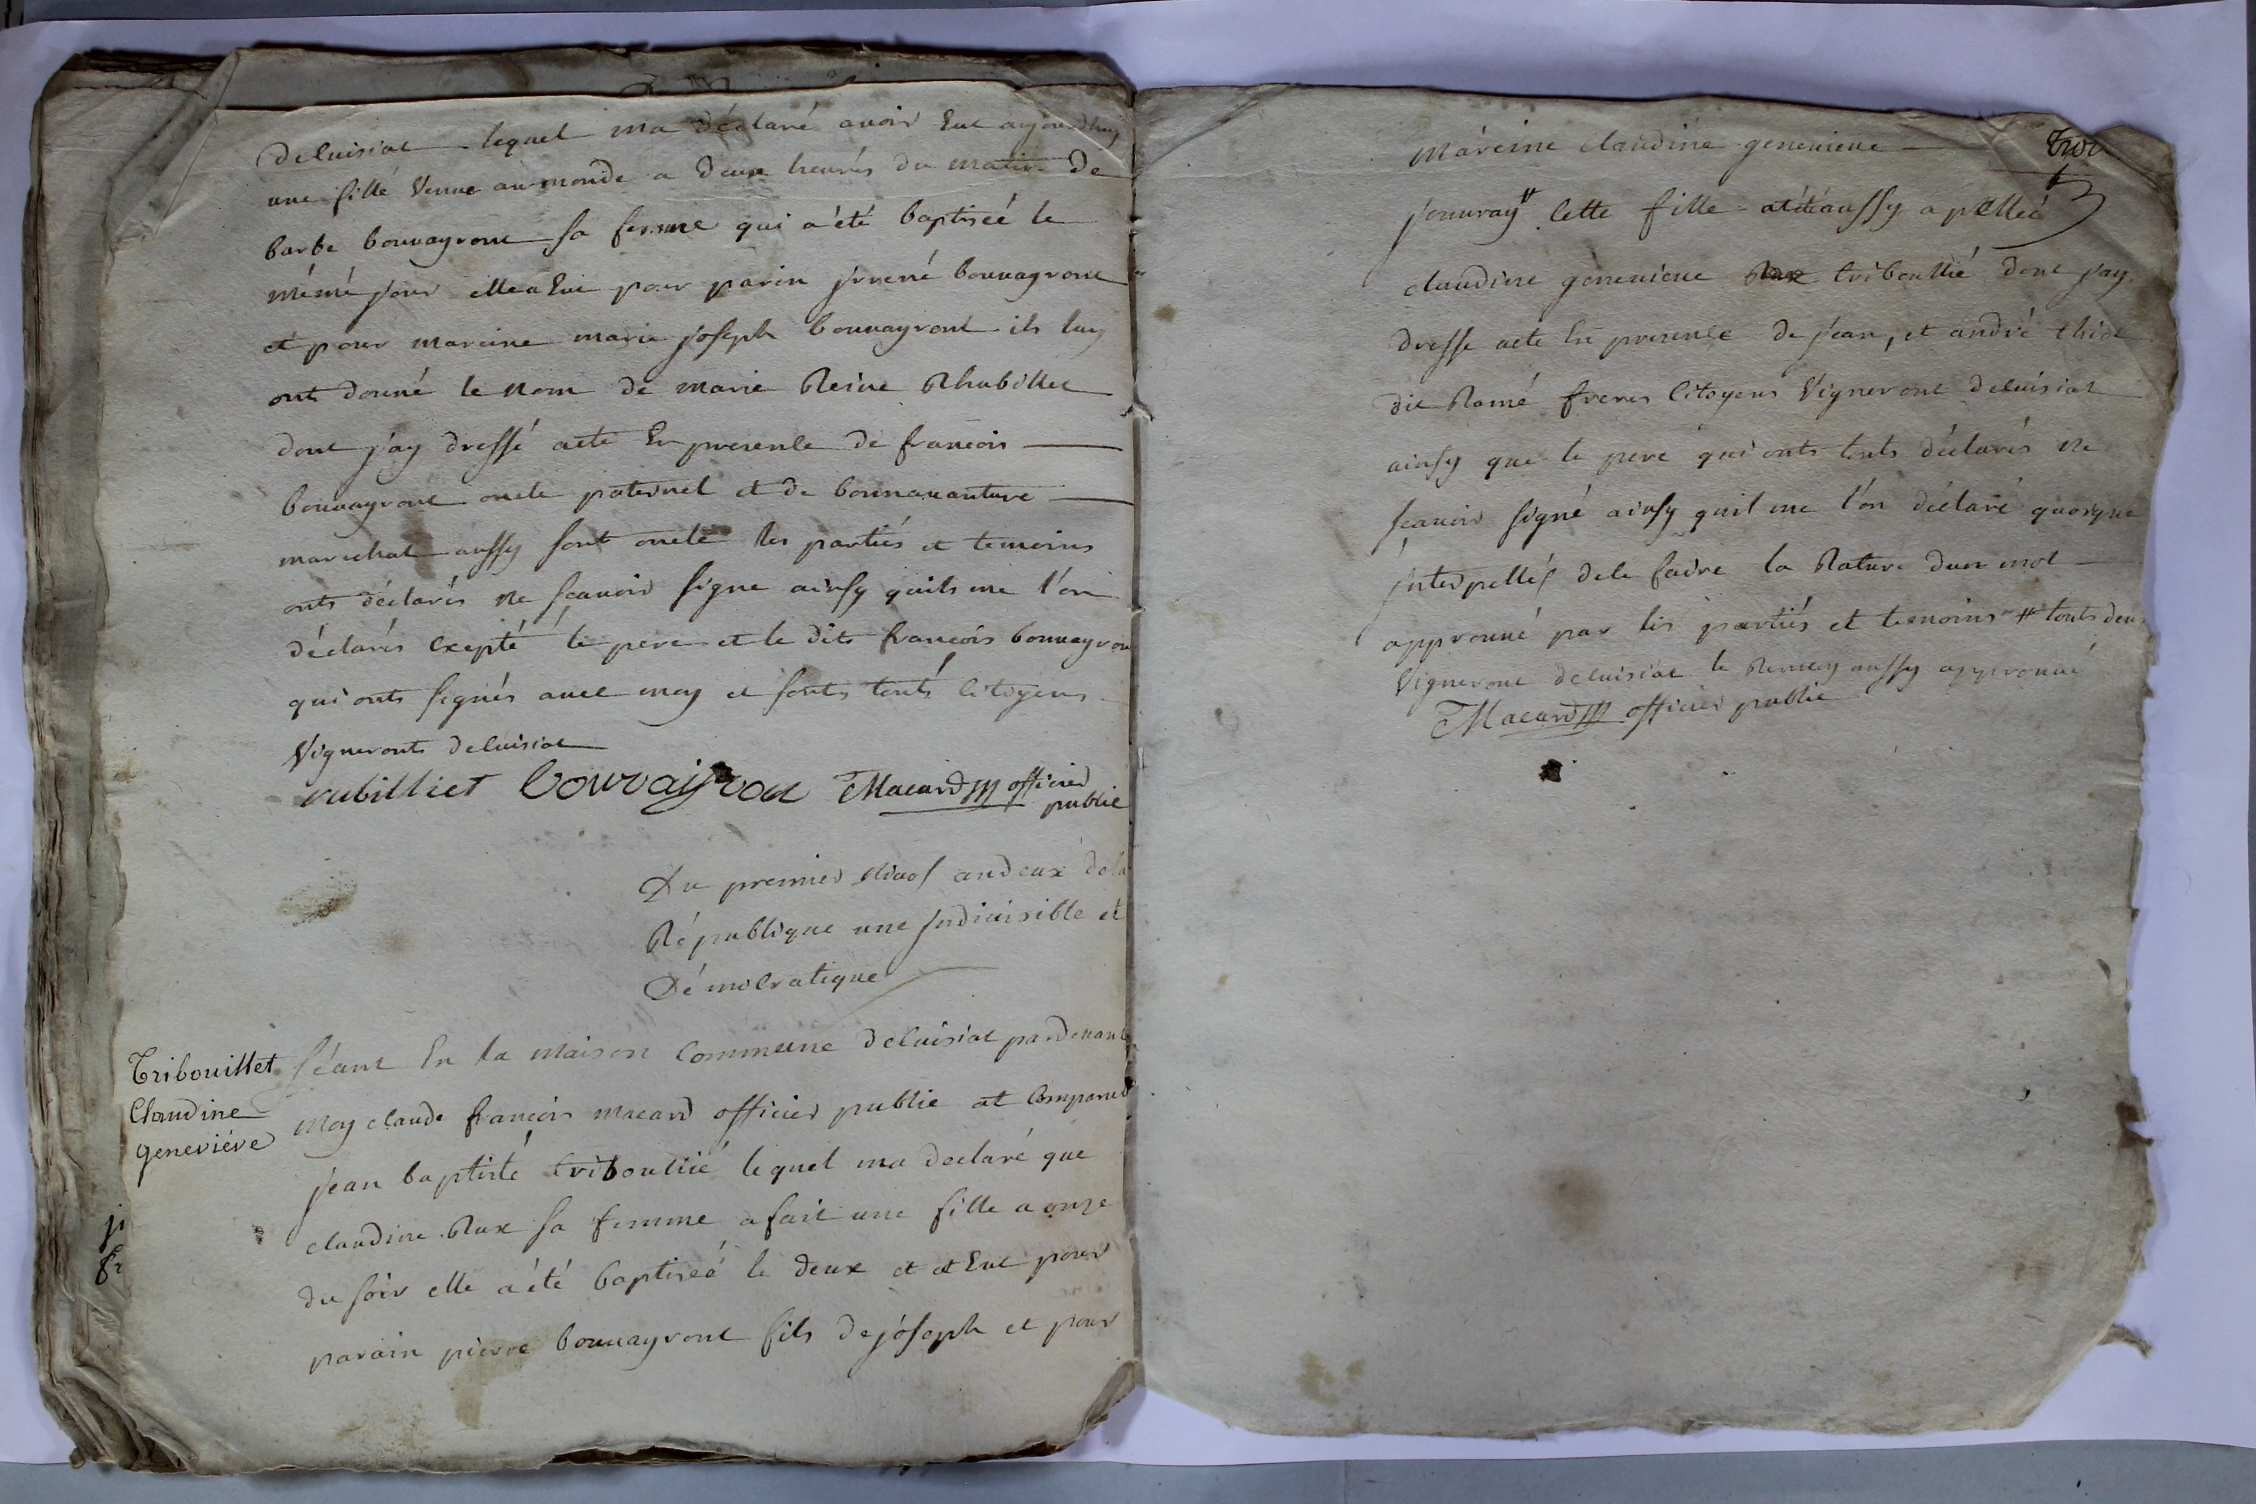 deluisiat lequel ma déclaré avoir Eut aujourdhuy
une fille Venue au monde a deux heurés du matin de
barbe bouuayront sa femme qui a été baptiseé le
mémé jour elle a Eut pour parin jrrené bouuayront
et pour mareine marie joseph bouuayront ils luy
onts donné le nom de marie Reine Rhubillet
dont jay dressé acte En presenle de francois
bouuayront oncle paternel et de bonnauanture
marechal aussy sont oncle les partiés et temoins
onts déclarés ne scauoir signe ainsy quils me l'on
déclarés Exepté le pere et le dits francois bouuayron
qui onts signés auec moy et sonts touts Citoyens
Vigneronts deluisiat
rubilliet bouvayron CMacard officier
public
Du premier Nivos an deux de la
République une jndiuisible et
Démocratique
Tribouillet
Claudine
geneviéve
séant En la maison Commune deluisiat pardeuant
moy claude francois macard officier public at Comparud
jean baptisté triboullié lequel ma declaré que
claudine Rux sa femme a fait une fille a onze
du soir elle a été baptiseé le deux et at Eut pour
parain pierre bouuayront fils de joseph et pour
máreine claudine geneuieue
jouuray # Cette fille at été aussy apelleé
claudine geneuieue Rux triboullié dont jay
dresse acte En presence de jean, et andré thi
dit Ramé freres Citoyens Vigneront deluisiat
ainsy que le pere qui onts touts déclarés ne
scauoir signé ainsy quil me l'on déclaré quoyque
jnterpellés dele faire la Rature dun mot
approuué par lés partiés et temoins # touts deux
Vigneront deluisiat le Renuoy aussy approuué
CMacard officier public